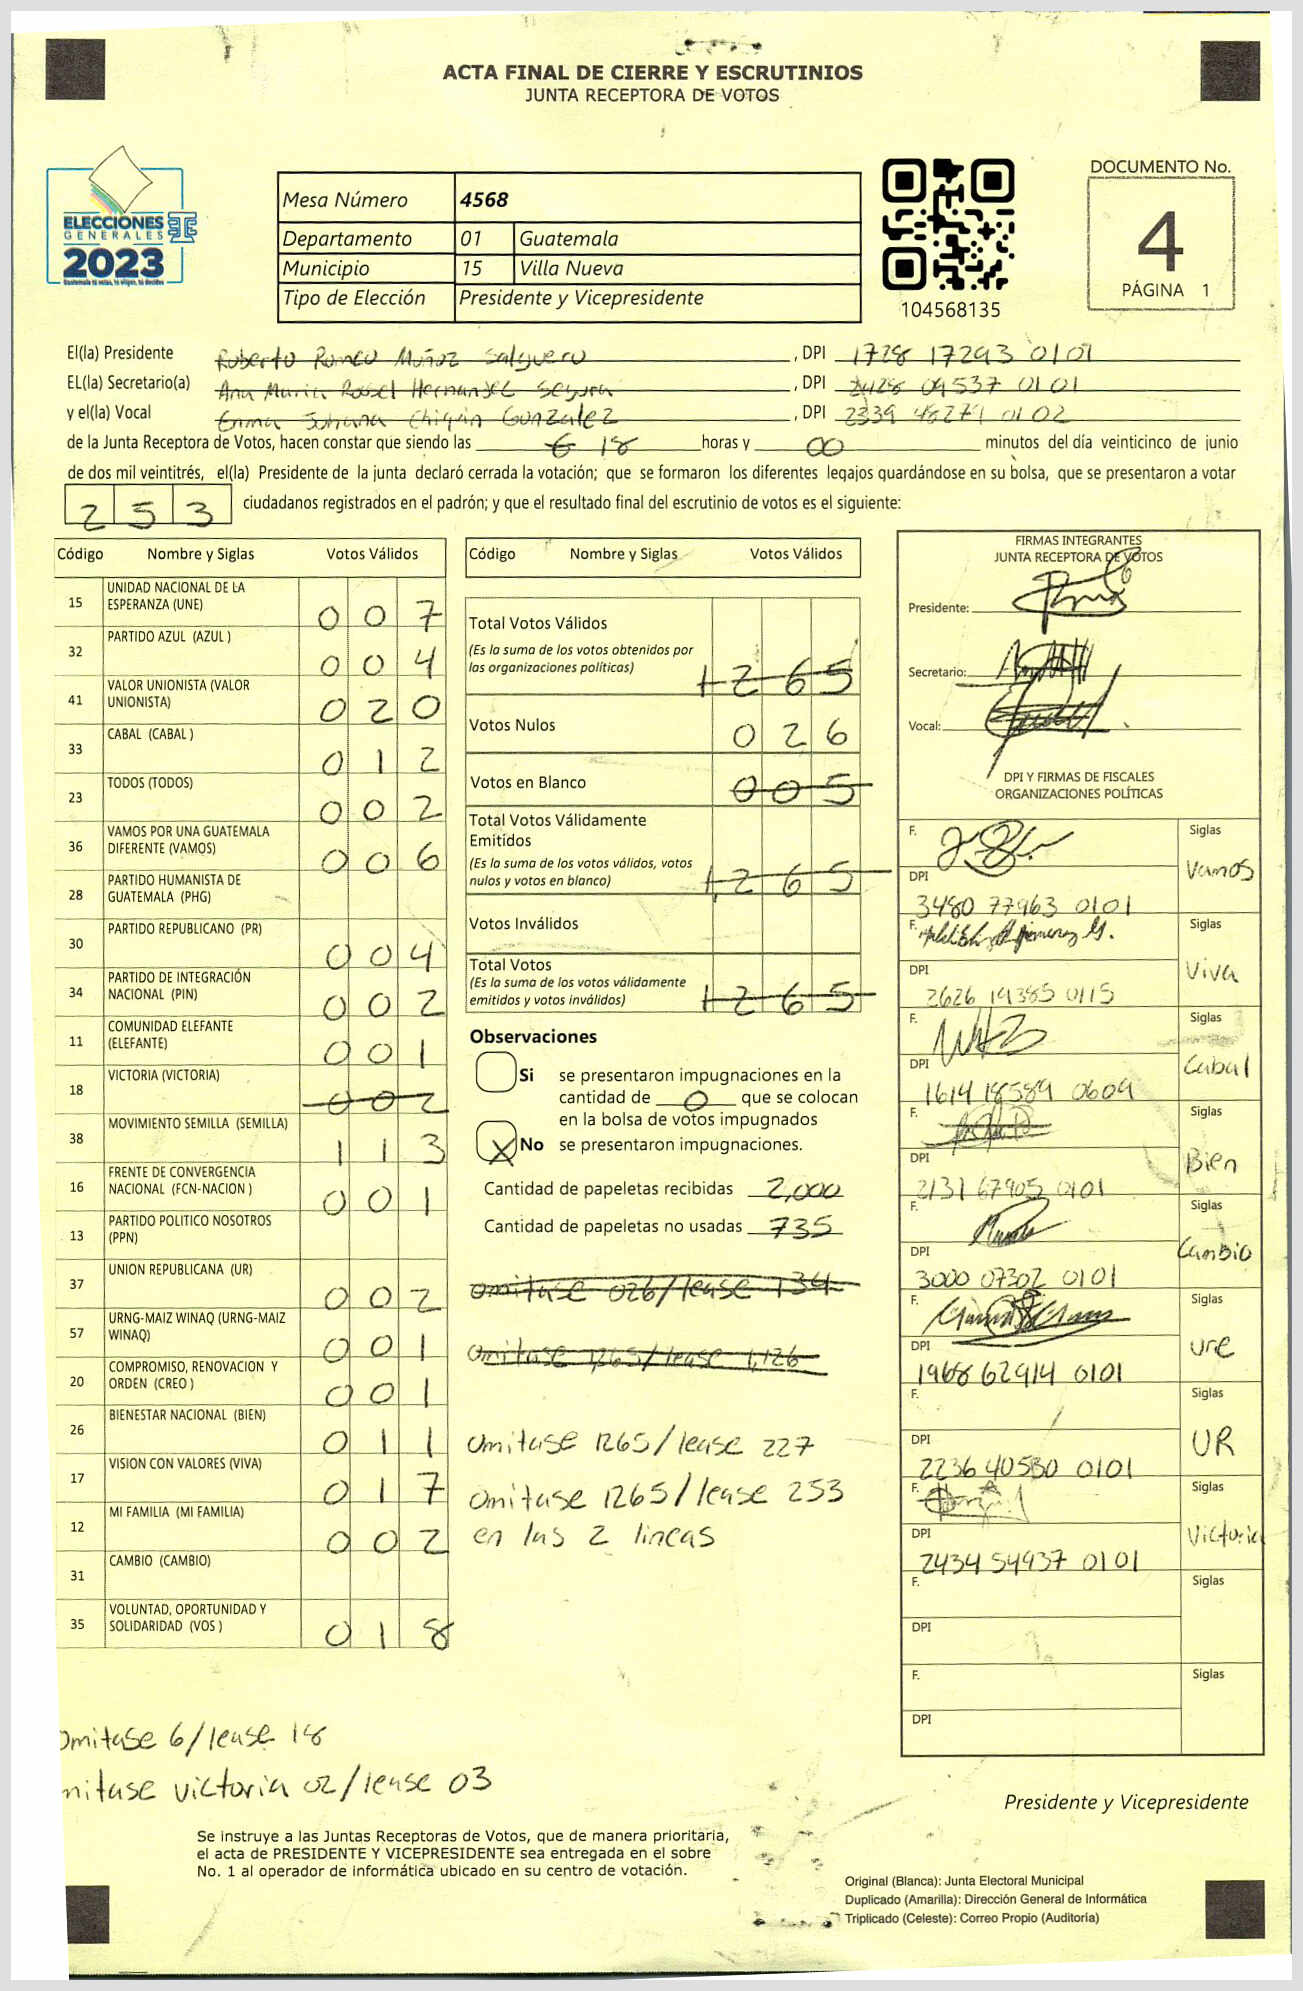 ACTA FINAL DE CIERRE Y ESCRUTINIOS
JUNTA RECEPTORA DE VOTOS
ELECCIONES
GENERALES
2023
Mesa Número 4568
Departamento 01 Guatemala
Municipio 15 Villa Nueva
Tipo de Elección Presidente y Vicepresidente
104568135
DOCUMENTO No.
4
PÁGINA 1
El(la) Presidente Roberto Romeo Muñoz Salguero , DPI 1728 17293 0101
EL(la) Secretario(a) Ana Maria Rossel Hernandez Segura , DPI 2428 09537 0101
y el(la) Vocal Emma Chiquin Gonzalez , DPI 2339 48271 0102
de la Junta Receptora de Votos, hacen constar que siendo las 6 18 horas y 00 minutos del día veinticinco de junio
de dos mil veintitrés, el(la) Presidente de la junta declaró cerrada la votación; que se formaron los diferentes legajos guardándose en su bolsa, que se presentaron a votar
253 ciudadanos registrados en el padrón; y que el resultado final del escrutinio de votos es el siguiente:
Código Nombre y Siglas Votos Válidos
15 UNIDAD NACIONAL DE LA
ESPERANZA (UNE) 007
32 PARTIDO AZUL (AZUL ) 004
41 VALOR UNIONISTA (VALOR
UNIONISTA) 020
33 CABAL (CABAL ) 012
23 TODOS (TODOS) 002
36 VAMOS POR UNA GUATEMALA
DIFERENTE (VAMOS) 006
28 PARTIDO HUMANISTA DE
GUATEMALA (PHG)
30 PARTIDO REPUBLICANO (PR) 004
34 PARTIDO DE INTEGRACIÓN
NACIONAL (PIN) 002
11 COMUNIDAD ELEFANTE
(ELEFANTE) 001
18 VICTORIA (VICTORIA) 002
38 MOVIMIENTO SEMILLA (SEMILLA) 113
16 FRENTE DE CONVERGENCIA
NACIONAL (FCN-NACION ) 001
13 PARTIDO POLITICO NOSOTROS
(PPN)
37 UNION REPUBLICANA (UR) 002
57 URNG-MAIZ WINAQ (URNG-MAIZ
WINAQ) 001
20 COMPROMISO, RENOVACION Y
ORDEN (CREO ) 001
26 BIENESTAR NACIONAL (BIEN) 011
17 VISION CON VALORES (VIVA) 017
12 MI FAMILIA (MI FAMILIA) 002
31 CAMBIO (CAMBIO)
35 VOLUNTAD, OPORTUNIDAD Y
SOLIDARIDAD (VOS ) 018
Omitase 6/lease 18
mitase victoria 02/lease 03
Código Nombre y Siglas Votos Válidos
Total Votos Válidos
(Es la suma de los votos obtenidos por
las organizaciones políticas) 1265
Votos Nulos 026
Votos en Blanco 005
Total Votos Válidamente
Emitidos
(Es la suma de los votos válidos, votos
nulos y votos en blanco) 1,265
Votos Inválidos
Total Votos
(Es la suma de los votos válidamente
emitidos y votos inválidos) 1265
Observaciones
Si se presentaron impugnaciones en la
cantidad de 0 que se colocan
en la bolsa de votos impugnados
X No se presentaron impugnaciones.
Cantidad de papeletas recibidas 2,000
Cantidad de papeletas no usadas 735
Omitase 026/lease 134
Omitase 1,265/lease 1,126
Omitase 1265/lease 227
Omitase 1265/lease 253
en las 2 lineas
FIRMAS INTEGRANTES
JUNTA RECEPTORA DE VOTOS
Presidente:
Secretario:
Vocal:
DPI Y FIRMAS DE FISCALES
ORGANIZACIONES POLÍTICAS
F. Siglas
Vamos
DPI
3480 77963 0101
F. Siglas
Viva
DPI
2626 19385 0115
F. Siglas
Cabal
DPI
1614 18589 0609
F. Siglas
Bien
DPI
2131 67905 0101
F. Siglas
Cambio
DPI
3000 07302 0101
F. Siglas
une
DPI
1968 62914 0101
F. Siglas
UR
DPI
2236 40530 0101
F. Siglas
Victoria
DPI
2434 54937 0101
F. Siglas
DPI
F. Siglas
DPI
Presidente y Vicepresidente
Se instruye a las Juntas Receptoras de Votos, que de manera prioritaria,
el acta de PRESIDENTE Y VICEPRESIDENTE sea entregada en el sobre
No. 1 al operador de informática ubicado en su centro de votación.
Original (Blanca): Junta Electoral Municipal
Duplicado (Amarilla): Dirección General de Informática
Triplicado (Celeste): Correo Propio (Auditoría)